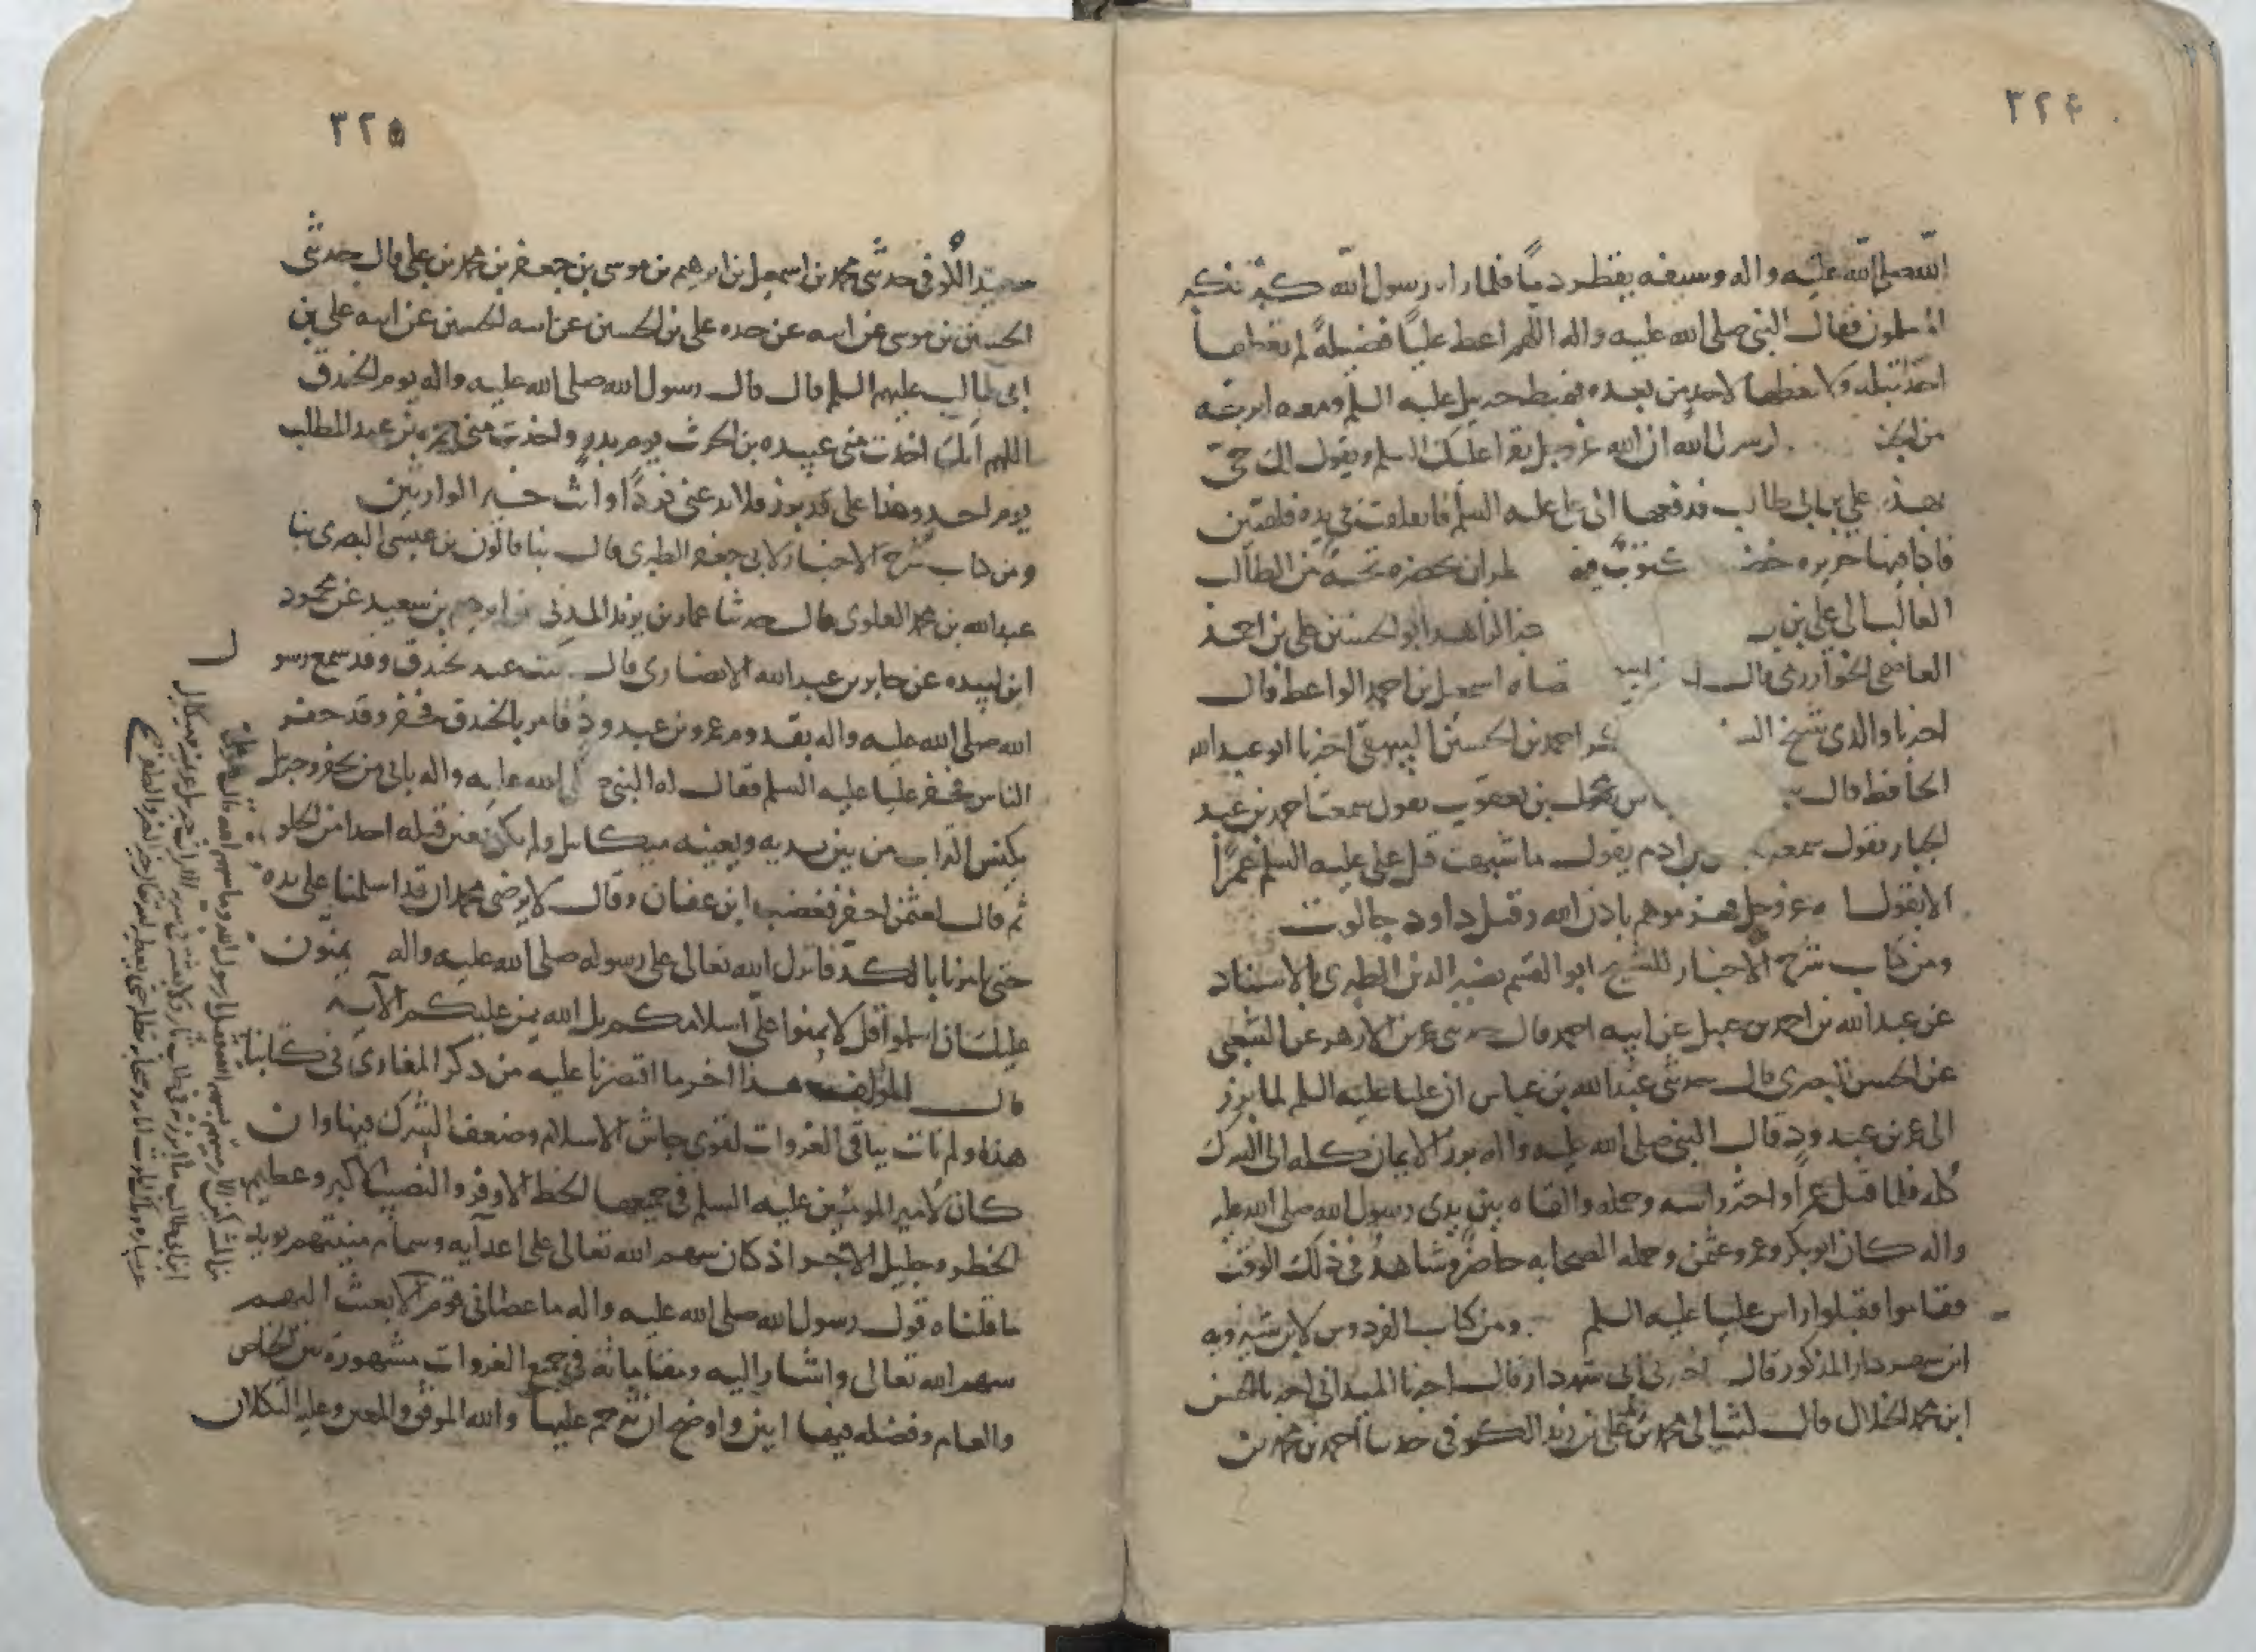 ٣٢٤
الله صلى الله عليه واله وسيفه يقطر دماً فلما راه رسول الله كبر تكبير
المسلمون فقال النبي صلى الله عليه واله اللهم اعط علياً فضيلةً لم تعطها
احداً قبله ولا تعطها لاحد من بعده فهبط جبريل عليه السلم ومعه اترجه
من الجنه رسول الله ان الله عز وجل يقرا عليك السلم ويقول لك حي
بهذه علي بن ابي طالب فدفعها الى علي عليه السلم فانفلقت في يده فلقتين
فاذا فيها حريره خضر مكتوب فيه تحفة من الطالب
الغالب الى علي بن الزاهد ابو الحسن علي بن احمد
العاصمي الخوارزمي قال القضاه اسمعيل بن احمد الواعظ قال
اخبرنا والدي شيخ السنه بكر احمد بن الحسين البيهقي اخبرنا ابو عبد الله
الحافظ قال محمد بن يعقوب يقول سمعت احمد بن عبد
الجبار يقول سمعت بن ادم يقول ما شبهت قتل علي عليه السلم عمراً
الا بقول الله عز وجل فهزموهم باذن الله وقتل داود جالوت
ومن كتاب شرح الاخبار للشيخ ابو القسم نصير الدين الطبري بالاسناد
عن عبد الله بن احمد بن حنبل عن ابيه احمد قال حدثني عن الازهر عن الشعبي
عن الحسن البصري قال حدثني عبد الله بن عباس ان عليا عليه السلم لما برز
الى عمرو بن عبد ود قال النبي صلى الله عليه واله برز الايمان كله الى الشرك
كله فلما قتل عمراً واحتز راسه وحمله والقاه بين يدي رسول الله صلى الله عليه
واله كان ابو بكر وعمر وعثمن وجمله الصحابه حاضر وشاهد في ذلك الوقت
فقاموا فقبلوا راس عليا عليه السلم ومن كتاب الفردوس لابن شيرويه
ابن شهردار المذكور قال اخبرني ابي شهردار قال اخبرنا الميداني اخبرنا الحسن
ابن محمد الخلال قال محمد بن علي بن زيد الكوفي حدثنا احمد بن محمد بن
٣٢٥
سعيد الكوفي حدثني محمد بن اسمعيل بن ابرهيم بن موسى بن جعفر بن محمد بن علي قال حدثني
الحسين بن موسى عن ابيه عن جده علي بن الحسين عن ابيه الحسين عن ابيه علي بن
ابي طالب عليهم السلم قال قال رسول الله صلى الله عليه واله يوم الخندق
اللهم انك اخذت مني عبيده بن الحرث يوم بدر واخذت مني حمزه بن عبد المطلب
يوم احد وهذا علي قد برز فلا تدعني فرداً وانت خير الوارثين
ومن كتاب شرح الاخبار لابي جعفر الطبري قال بن عيسى البصري نبا
عبد الله بن محمد العلوي قال حدثنا عمار بن يزيد المدني ابرهيم بن سعيد عن محمود
ابن لبيده عن جابر بن عبد الله الانصاري قال كنت عند خندق وقد سمع رسول
الله صلى الله عليه واله بقدوم عمرو بن عبد ود فامر بالخندق فحفر وقد حفر
الناس فحفر عليا عليه السلم فقال له النبي صلى الله عليه واله بابي من يحفر وجبريل
يكنس التراب من بين يديه ويعينه ميكائيل ولم يكن يعين قبله احدا من الخلق
ثم قال لعثمن احفر فغضب ابن عفان وقال لا يرضى محمد ان قد اسلمنا على يده
حتى يامرنا بالكد فانزل الله تعالى على رسوله صلى الله عليه واله يمنون
عليك ان اسلموا قل لا تمنوا علي اسلامكم بل الله يمن عليكم الآيه
قال المؤلف هذا اخر ما اقتصرنا عليه من ذكر المغازي في كتابنا
هذا ولم نات بباقي الغزوات لقوي جاش الاسلام وضعف الشرك فيها وان
كان لامير المومنين عليه السلم في جميعها الحظ الاوفر والنصيب الاكبر وعظيم
الخطر وجليل الاجر اذ كان سهم الله تعالى على اعدآيه
ما قلناه قول رسول الله صلى الله عليه واله ما عصاني قوم الا بعثت اليهم
سهم الله تعالى واشار اليه ومقاماته في جميع الغزوات مشهورة بين الخاص
والعام وفضله فيها ابين واوضح ان نترجم عليها والله الموفق والمعين وعليه التكلان